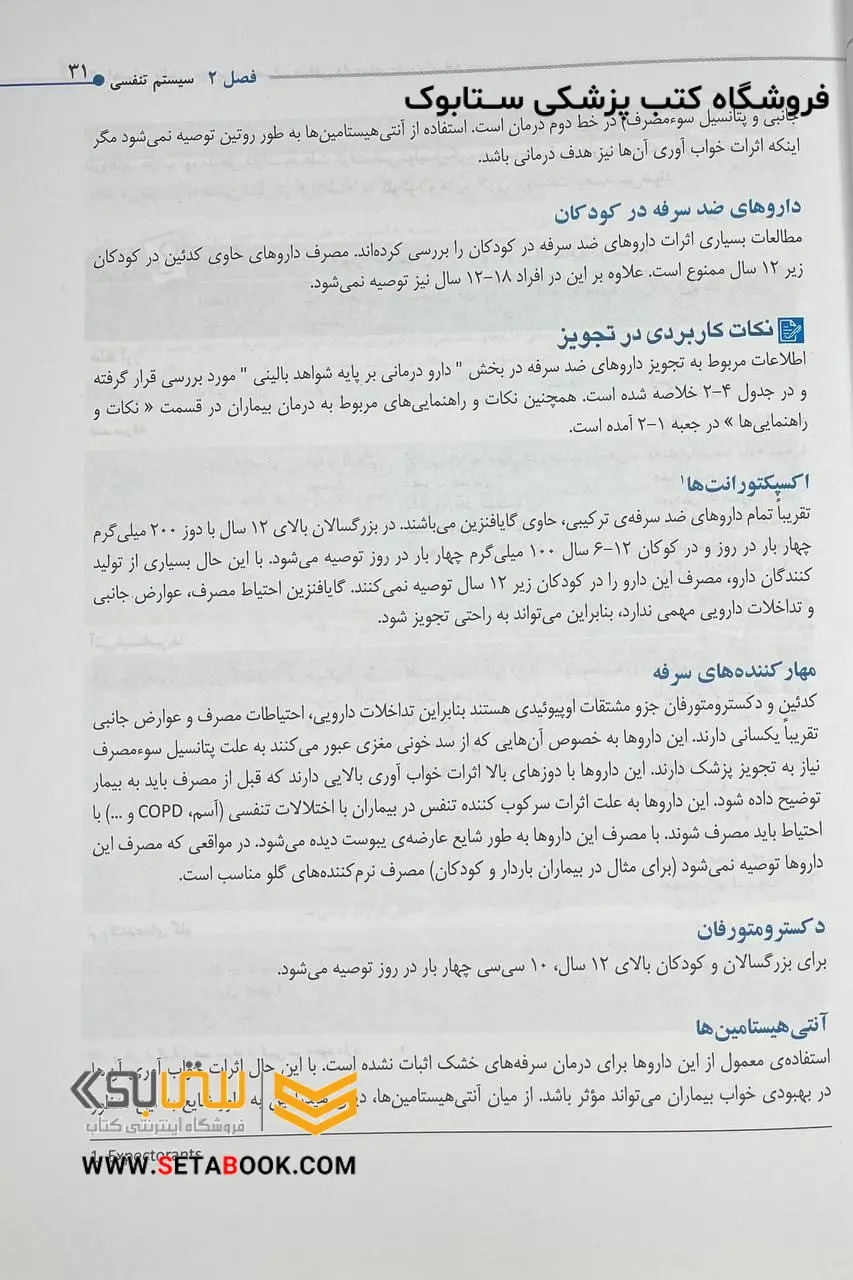 فصل ۲ سیستم تنفسی ۳۱
فروشگاه کتب پزشکی ستابوک
جانبی و پتانسیل سوءمصرف) در خط دوم درمان است. استفاده از آنتی‌هیستامین‌ها به طور روتین توصیه نمی‌شود مگر
اینکه اثرات خواب آوری آن‌ها نیز هدف درمانی باشد.
داروهای ضد سرفه در کودکان
مطالعات بسیاری اثرات داروهای ضد سرفه در کودکان را بررسی کرده‌اند. مصرف داروهای حاوی کدئین در کودکان
زیر ۱۲ سال ممنوع است. علاوه بر این در افراد ۱۸-۱۲ سال نیز توصیه نمی‌شود.
نکات کاربردی در تجویز
اطلاعات مربوط به تجویز داروهای ضد سرفه در بخش " دارو درمانی بر پایه شواهد بالینی " مورد بررسی قرار گرفته
و در جدول ۴-۲ خلاصه شده است. همچنین نکات و راهنمایی‌های مربوط به درمان بیماران در قسمت « نکات و
راهنمایی‌ها » در جعبه ۱-۲ آمده است.
اکسپکتورانت‌ها۱
تقریباً تمام داروهای ضد سرفه‌ی ترکیبی، حاوی گایافنزین می‌باشند. در بزرگسالان بالای ۱۲ سال با دوز ۲۰۰ میلی‌گرم
چهار بار در روز و در کوکان ۱۲-۶ سال ۱۰۰ میلی‌گرم چهار بار در روز توصیه می‌شود. با این حال بسیاری از تولید
کنندگان دارو، مصرف این دارو را در کودکان زیر ۱۲ سال توصیه نمی‌کنند. گایافنزین احتیاط مصرف، عوارض جانبی
و تداخلات دارویی مهمی ندارد، بنابراین می‌تواند به راحتی تجویز شود.
مهارکننده‌های سرفه
کدئین و دکسترومتورفان جزو مشتقات اوپیوئیدی هستند بنابراین تداخلات دارویی، احتیاطات مصرف و عوارض جانبی
تقریباً یکسانی دارند. این داروها به خصوص آن‌هایی که از سد خونی مغزی عبور می‌کنند به علت پتانسیل سوءمصرف
نیاز به تجویز پزشک دارند. این داروها با دوزهای بالا اثرات خواب آوری بالایی دارند که قبل از مصرف باید به بیمار
توضیح داده شود. این داروها به علت اثرات سرکوب کننده تنفس در بیماران با اختلالات تنفسی (آسم، COPD و ...) با
احتیاط باید مصرف شوند. با مصرف این داروها به طور شایع عارضه‌ی یبوست دیده می‌شود. در مواقعی که مصرف این
داروها توصیه نمی‌شود (برای مثال در بیماران باردار و کودکان) مصرف نرم‌کننده‌های گلو مناسب است.
دکسترومتورفان
برای بزرگسالان و کودکان بالای ۱۲ سال، ۱۰ سی‌سی چهار بار در روز توصیه می‌شود.
آنتی‌هیستامین‌ها
استفاده‌ی معمول از این داروها برای درمان سرفه‌های خشک اثبات نشده است. با این حال اثرات خواب آوری آن‌ها
در بهبودی خواب بیماران می‌تواند مؤثر باشد. از میان آنتی‌هیستامین‌ها، به
ستابوک
فروشگاه اینترنتی کتاب
1. Expectorants
WWW.SETABOOK.COM